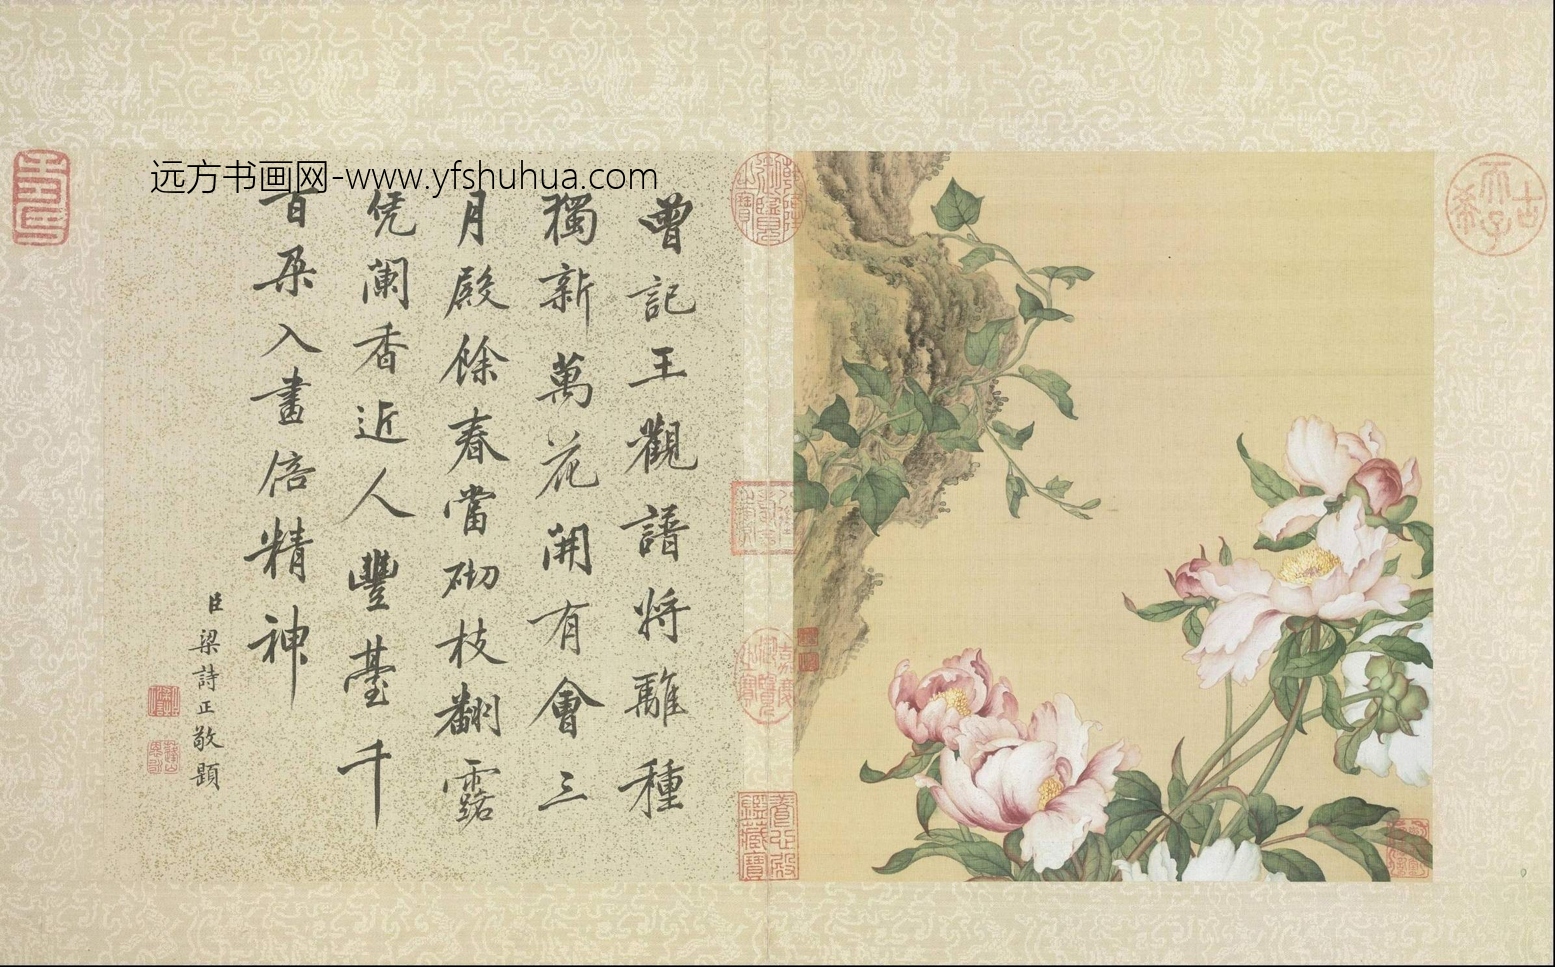 远方书画网-www.yfshuhua.com
曾記王觀譜將離種
獨新萬花開有會三
月殿餘春當砌枝翻露
凭闌香近人豐臺千
百朵入畫倍精神
臣梁詩正敬題
古希天子
養心殿鑑藏寶